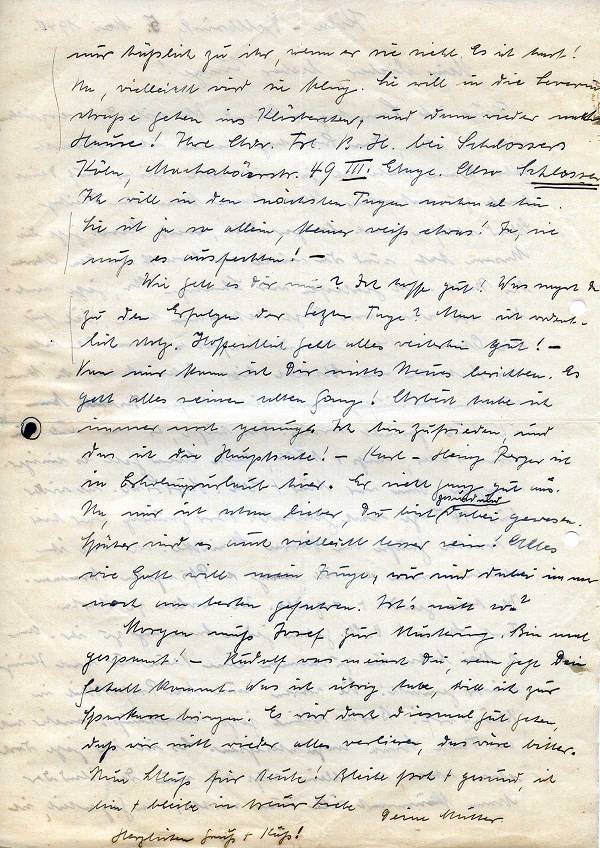 nur häßlich zu ihr, wenn er sie sieht. Es ist hart!
Na, vielleicht wird sie klug. Sie will in die Severin
straße gehen ins Klösterchen, und dann wieder nach
Hause! Ihre Adr. Frl. B. H. bei Schlossers
Köln, Machabäerstr. 49 III. Etage. Also Schlosser
Ich will in den nächsten Tagen nochmal hin.
Sie ist ja so allein, keiner weiß etwas! Ja, sie
muß es ausfechten! –
Wie geht es dir nun? Ich hoffe gut! Was sagst Du
zu den Erfolgen der letzten Tage? Man ist ordent-
lich stolz. Hoffentlich geht alles weiterhin gut! –
Von mir kann ich Dir nichts Neues berichten. Es
geht alles seinen alten Gang! Arbeit habe ich
immer noch genug. Ich bin zufrieden, und
das ist die Hauptsache! – Karl-Heinz ist
in Erholungsurlaub hier. Er sieht ganz gut aus.
Na, mir ist schon lieber, Du bist gesund und dabei gewesen.
Später wird es auch vielleicht besser sein! Alles
wie Gott will mein Junge, wir sind dabei immer
noch am besten gefahren. Ist's nicht wa?
Morgen muß Josef zur Musterung. Bin mal
gespannt! – Rudolf was meinst Du, wenn jetzt Dein
Gehalt kommt. Was ich übrig habe, will ich zur
Sparkasse bringen. Es wird doch diesmal gut gehen,
daß wir nicht wieder alles verlieren, das wäre bitter.
Nun Schluß für heute! Bleibe froh + gesund, ich
bin + bleibe in treuer Liebe Deine Mutter
Herzlichen Gruß + Kuß!